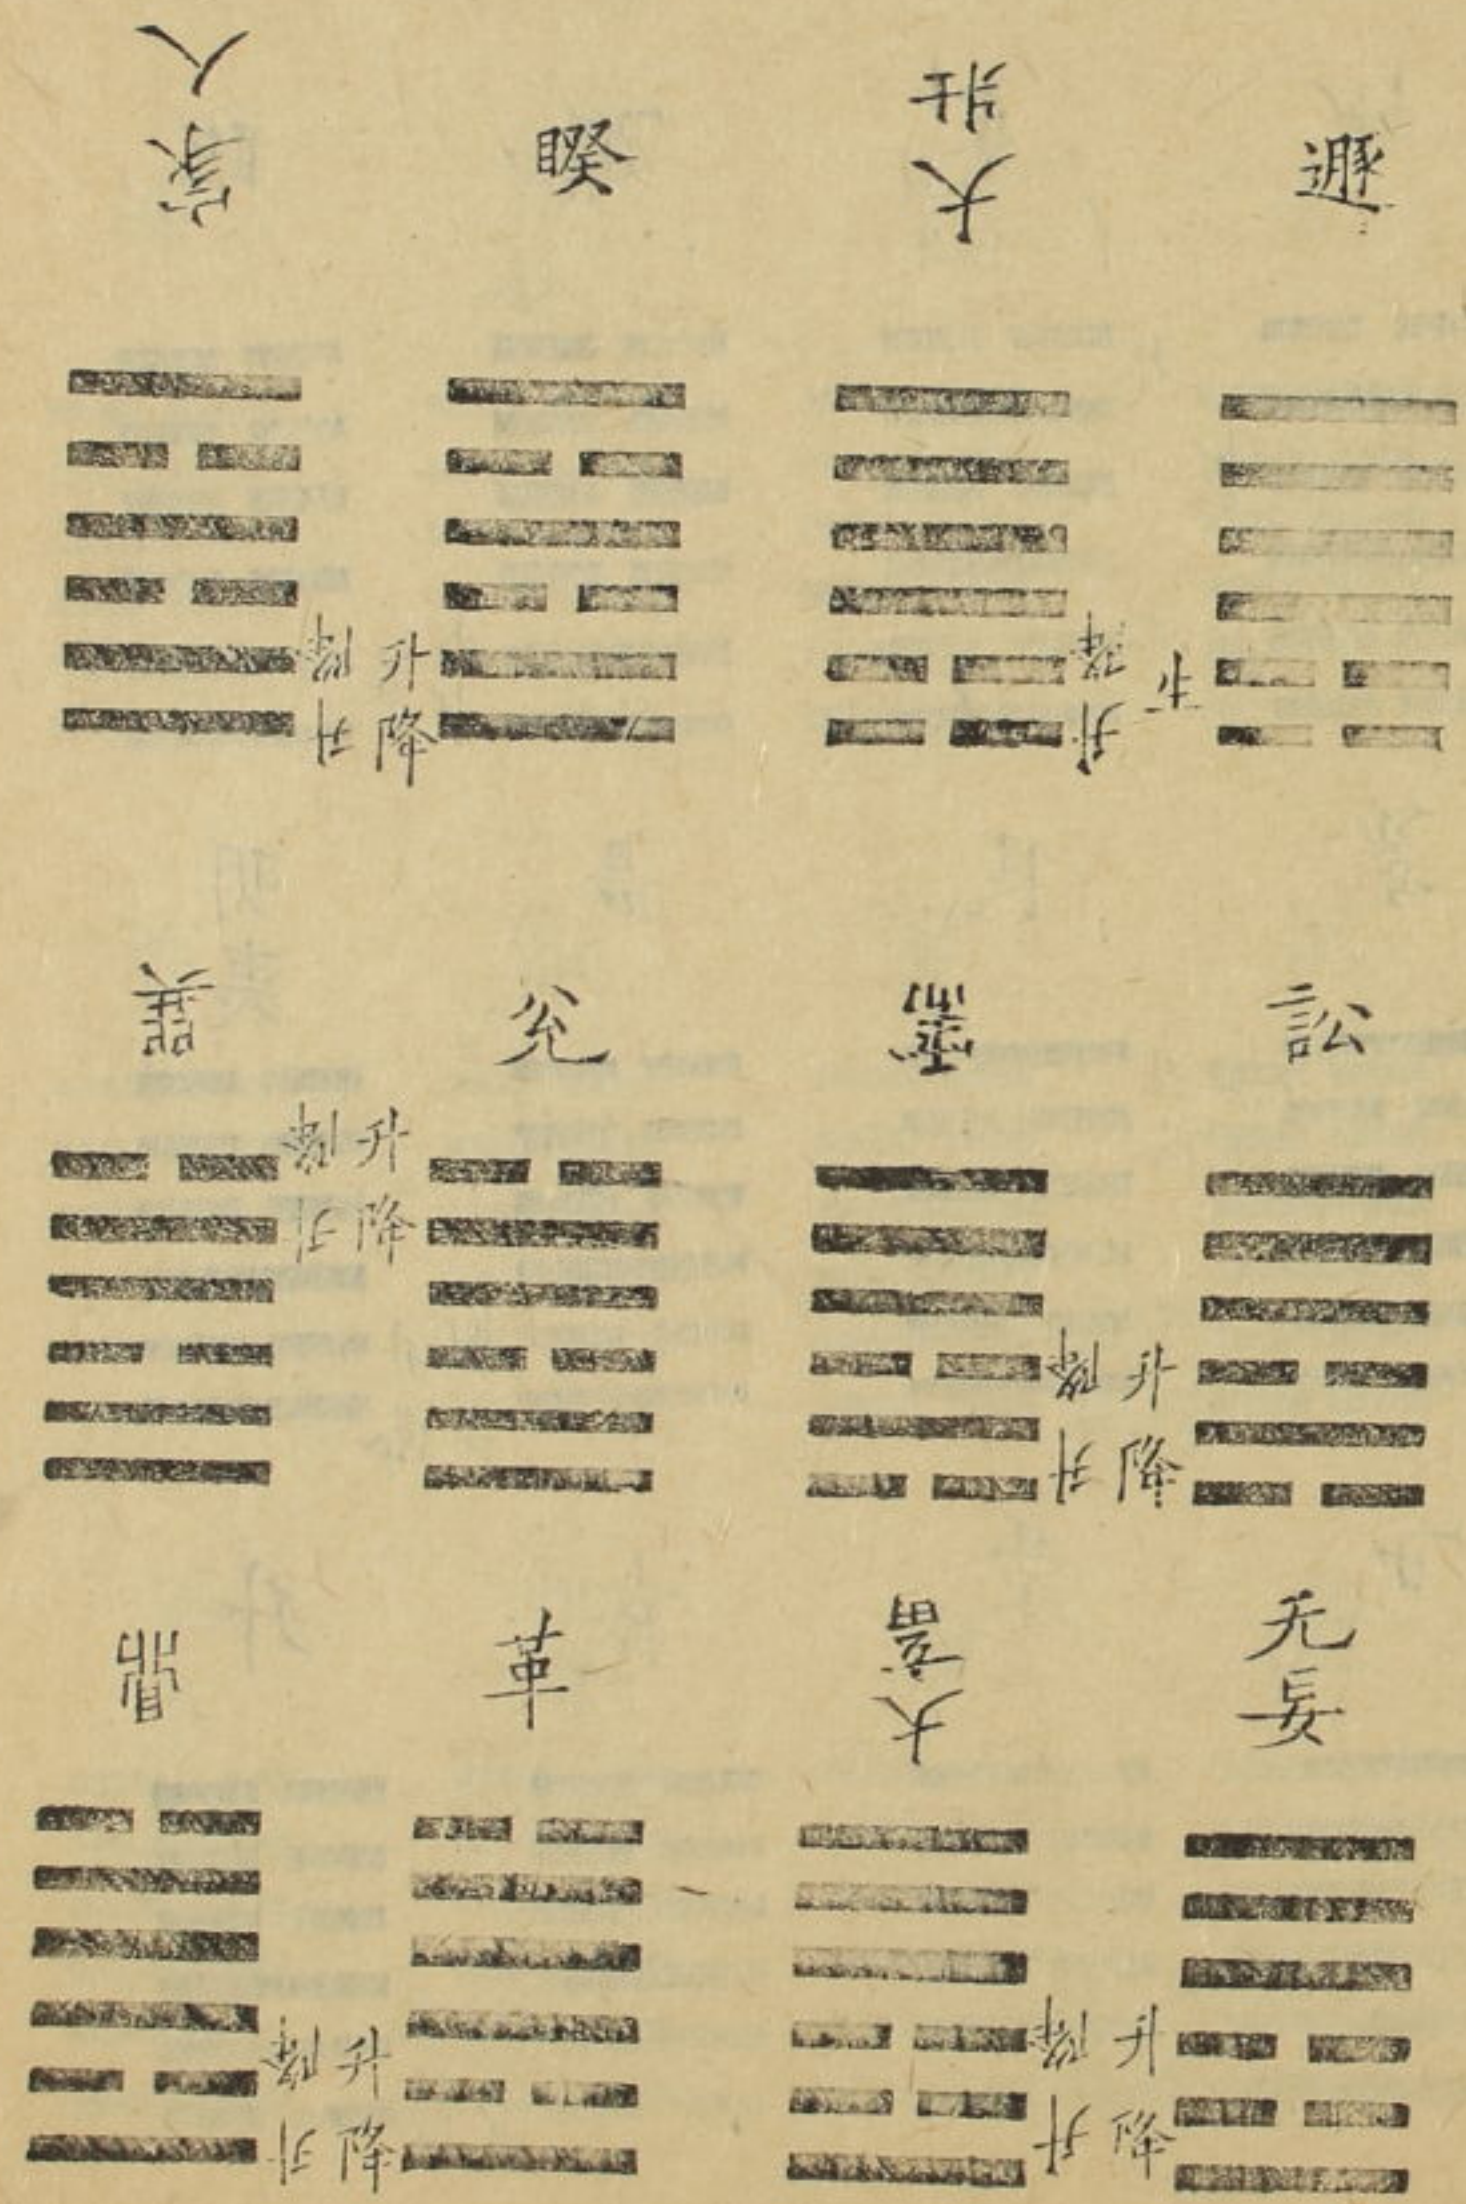 遯
大壯
睽
家人
升
升降
升降
升降
訟
需
兊
巽
升降
升降
升降
升降
无妄
大畜
革
鼎
升降
升降
升降
升降